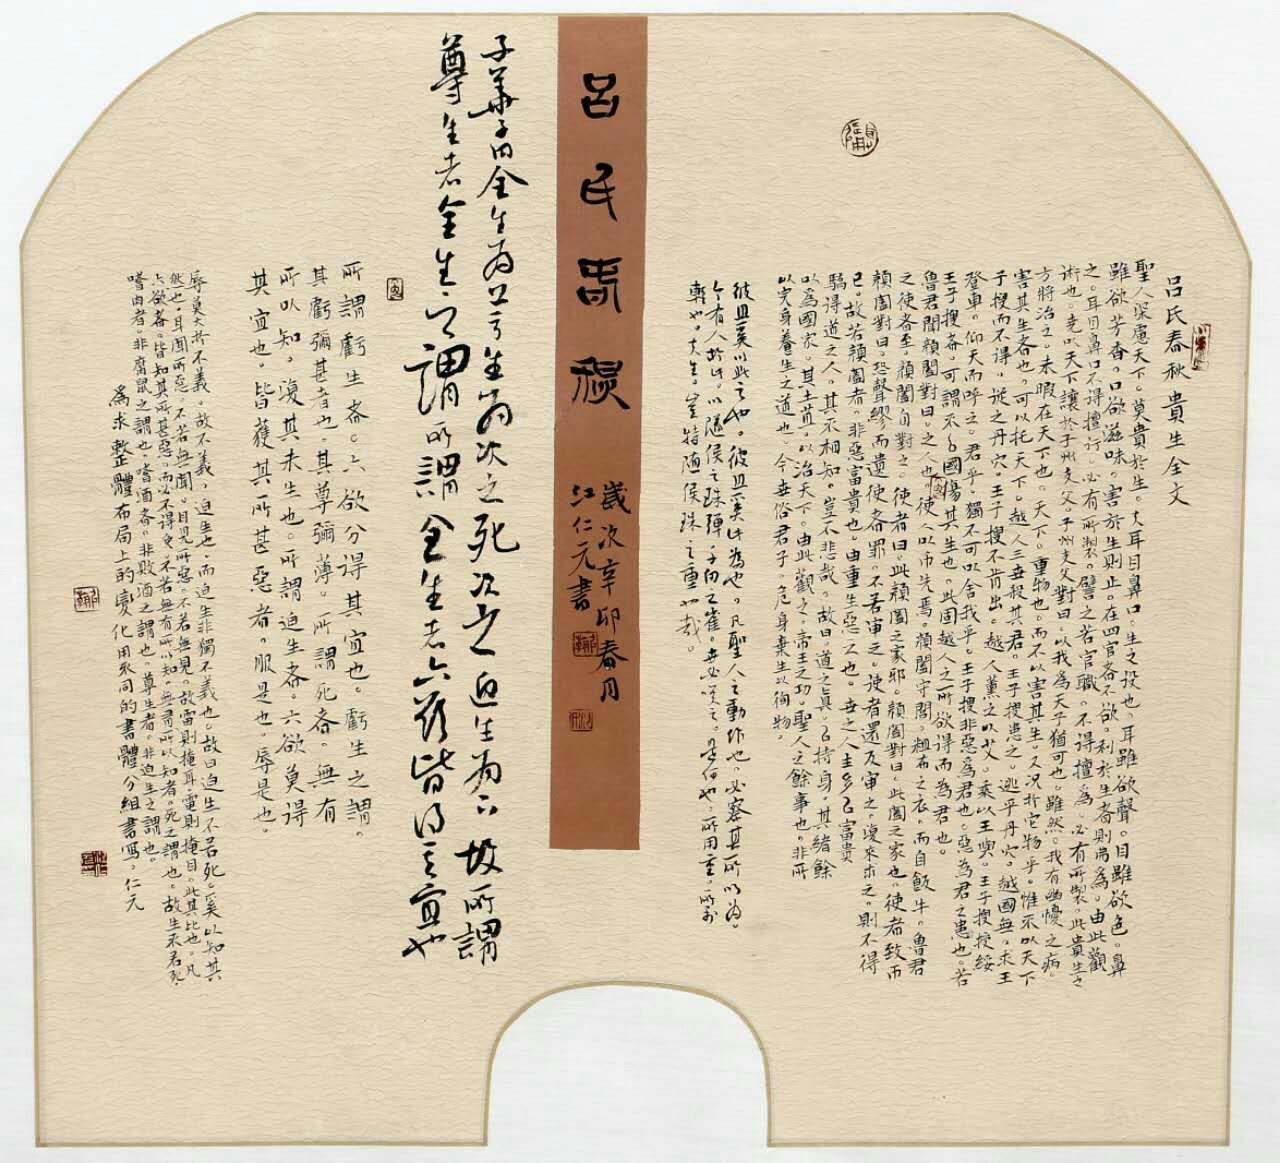 吕氏春秋 貴生全文
聖人深慮天下。莫貴於生。夫耳目鼻口。生之役也。耳雖欲聲。目雖欲色。鼻
雖欲芳香。口欲滋味。害於生則止。在四官者不欲。利於生者則為。由此觀
之。耳目鼻口不得擅行。必有所製。譬之若官職。不得擅為。必有所製。此貴生之
術也。堯以天下讓於子州支父。子州支父對曰。以我為天子猶可也。雖然。我有幽憂之病。
方將治之。未暇在天下也。天下。重物也。而不以害其生。又況於它物乎。惟不以天下
害其生者也。可以托天下。越人三世殺其君。王子搜患之。逃乎丹穴。越國無。求王
子搜而不得。從之丹穴。王子搜不肯出。越人薰之以艾。乘以王輿。王子搜授綏
登車。仰天而呼之。君乎。獨不可以舍我乎。王子搜非惡為君也。惡為君之患也。若
王子搜者。可謂不以國傷其生也。此固越人之所欲得而為君也。
魯君聞顏闔對曰。之人也。使人以币先焉。顏闔守閭。粗布之衣。而自飯牛。魯君
之使者至。顏闔自對之。使者曰。此顏闔之家邪。顏闔對曰。此闔之家也。使者致币
顏闔對曰。恐聽繆而遺使者罪。不若審之。使者還反審之。復來求之。則不得
已。故若顏闔者。非惡富貴也。由重生惡之也。世之人主多以富貴
驕得道之人。其不相知。豈不悲哉。故曰。道之真。以持身。其緒餘
以為國家。其土苴。以治天下。由此觀之。帝王之功。聖人之餘事也。非所
以完身養生之道也。今世俗君子。危身棄生以徇物。
彼且奚以此之也。彼且奚以為也。凡聖人之動作也。必察其所以為。
今有人於此。以隨侯之珠彈千仞之雀。世必笑之。是何也。所用重。所要
輕也。夫生。豈特随侯珠之重也哉。
吕氏春秋
歲次辛卯春月
江仁元書
子華子曰全生為上亏生為次之死次之迫生為下故所謂
尊生者全生之謂所謂全生者六欲皆得其宜也
所謂虧生者。六欲分得其宜也。虧生之謂。
其虧彌甚者也。其尊彌薄。所謂死者。無有
所以知。復其未生也。所謂迫生者。六欲莫得
其宜也。皆獲其所甚惡者。服是也。辱是也。
辱莫大於不義。故不義。迫生也。而迫生非獨不義也。故曰迫生不若死。奚以知其
然也。耳聞所惡。不若無聞。目見所惡。不若無見。故雷則掩耳。電則掩目。此其比也。凡
六欲者。皆知其所甚惡。而必不得免。不若無有所以知。無有所以知者。死之謂也。故生不若死。
嗜肉者。非腐鼠之謂也。嗜酒者。非敗酒之謂也。尊生者。非迫生之謂也。
為求整體布局上的變化用不同的書體分組書寫。仁元